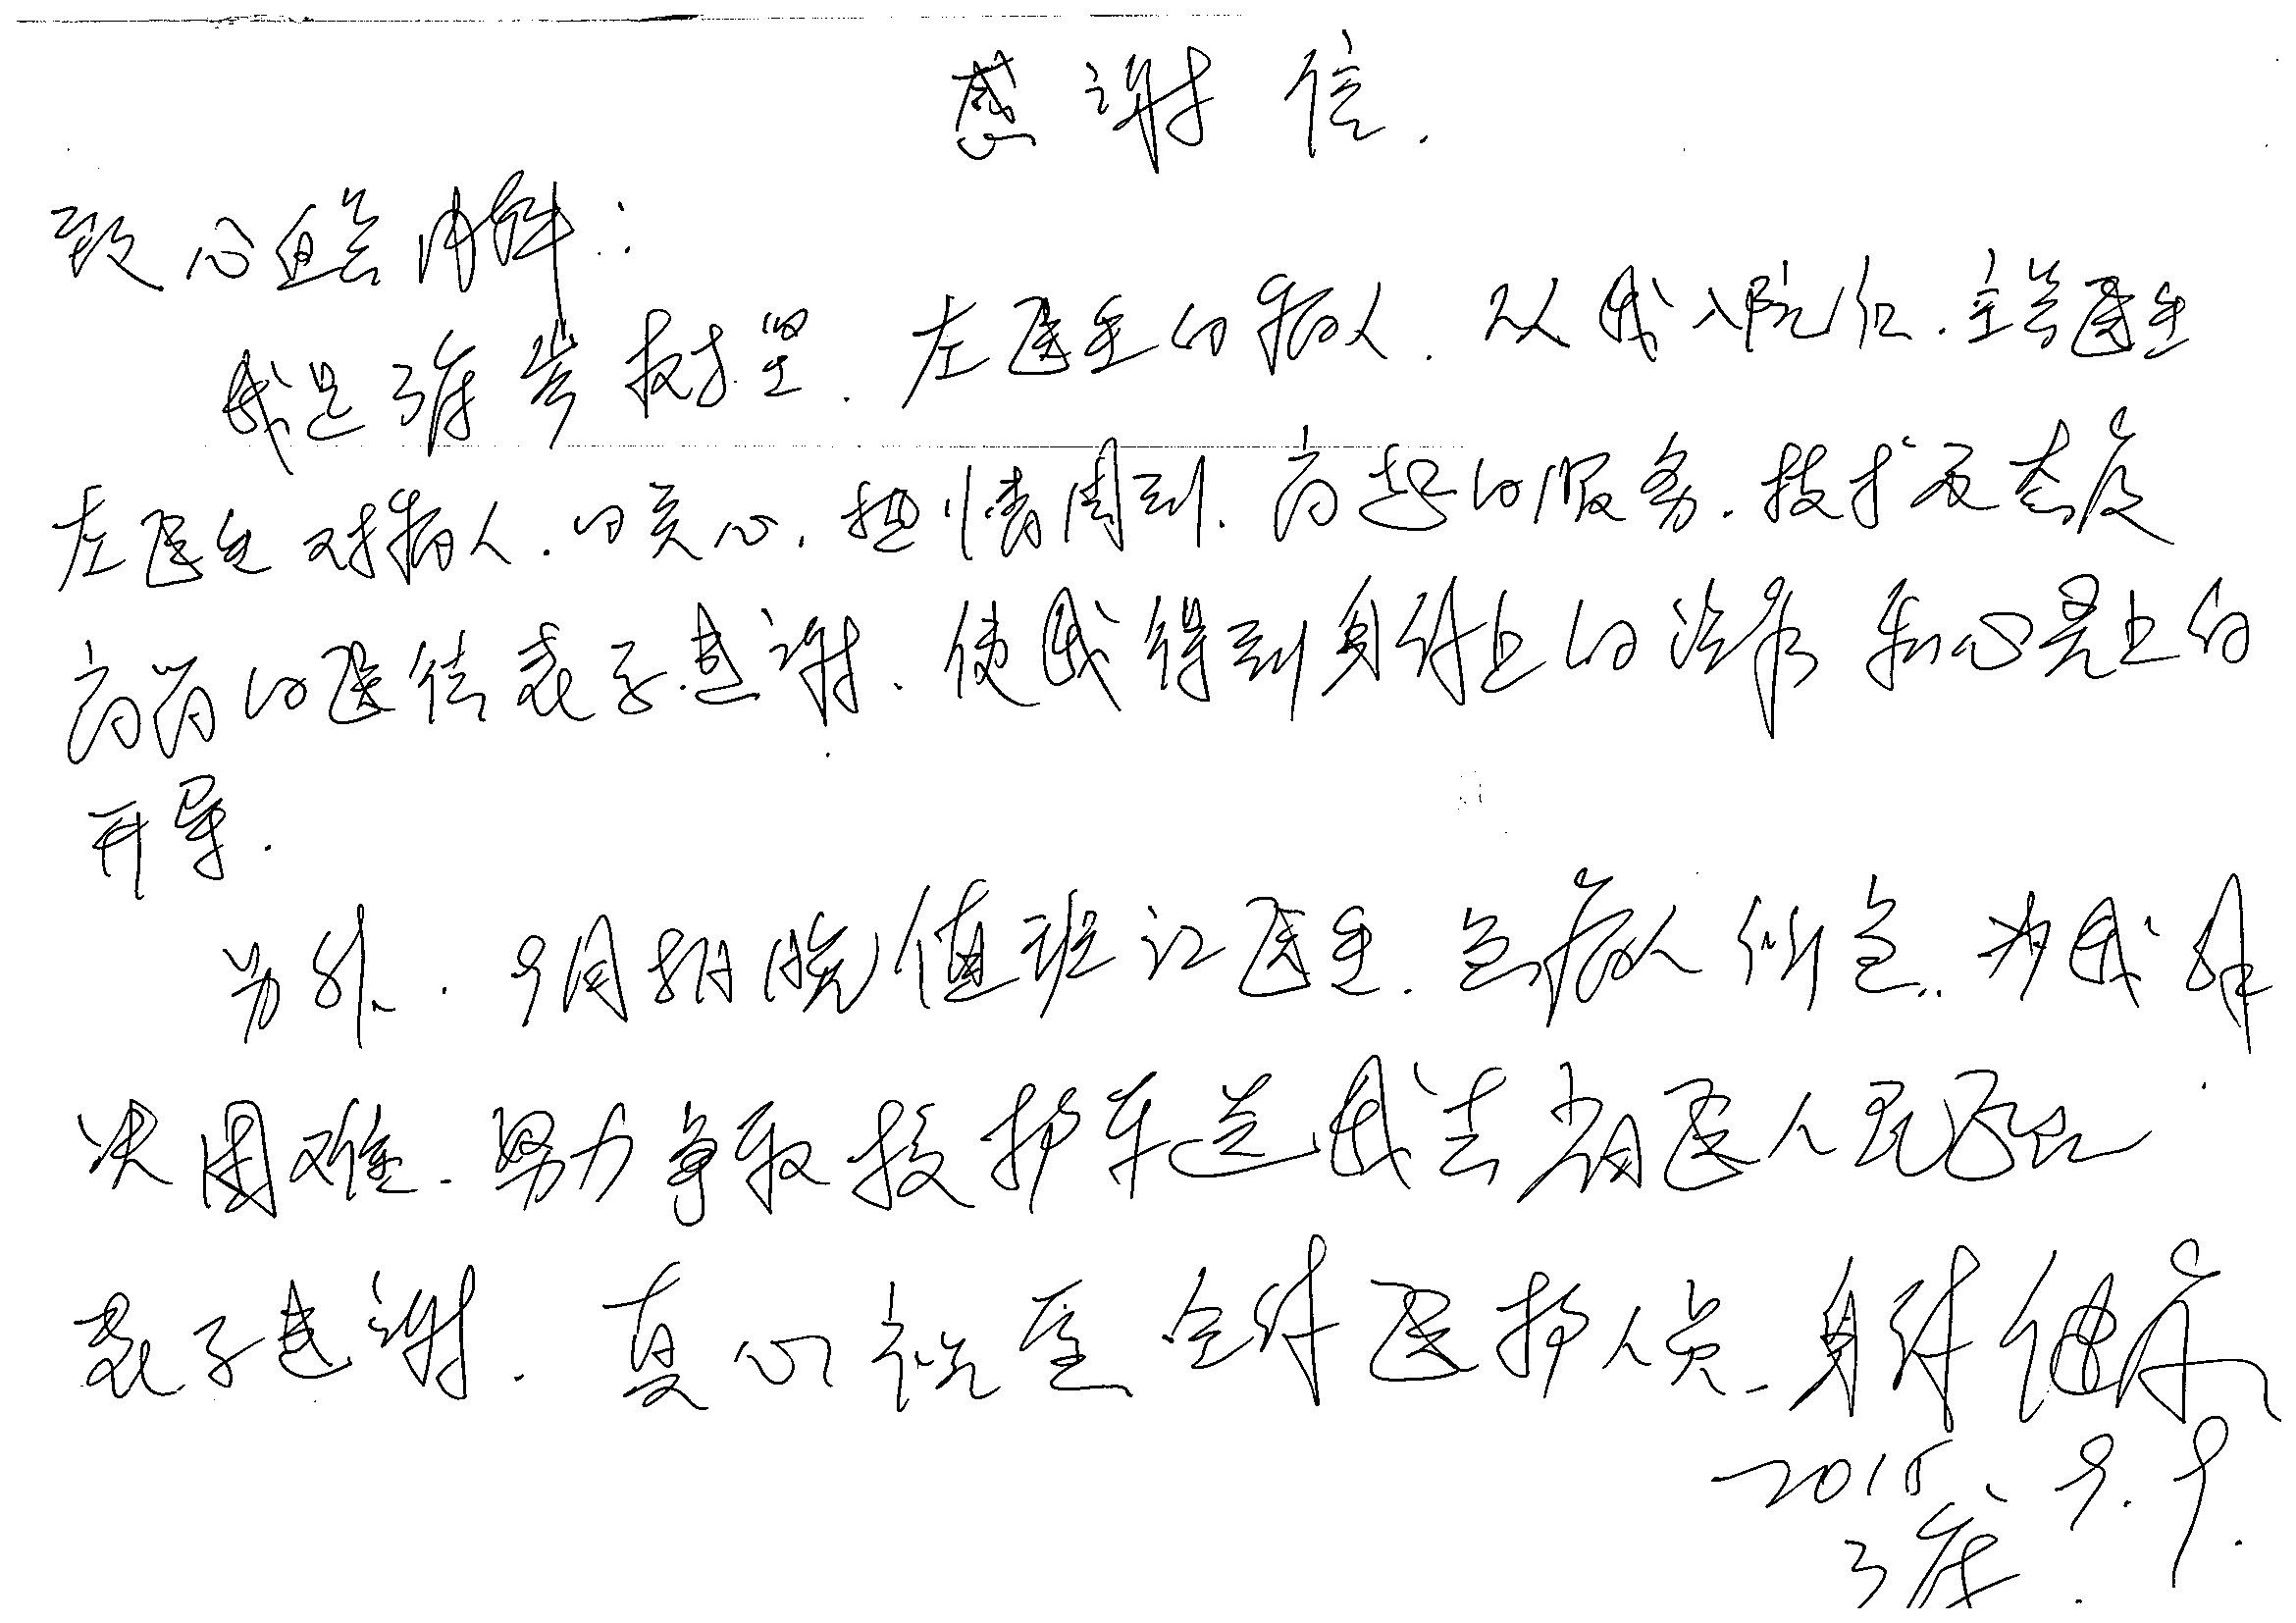 感谢信.
致心血管内科:
我是3床 黄 . 左医生的病人. 从我入院后. 主管医生
左医生对病人.的关心. 热情周到. 高超的服务. 技术及态度
高尚的医德表示感谢. 使我得到身体上的治疗和心灵上的
开导.
另外. 9月 晚值班江医生. 急病人所急. 为我解
决困难. 努力争取救护车送我去省医人民医院
表示感谢. 真心祝愿全体医护人员. 身体健康
2015. 9. 9.
3床.